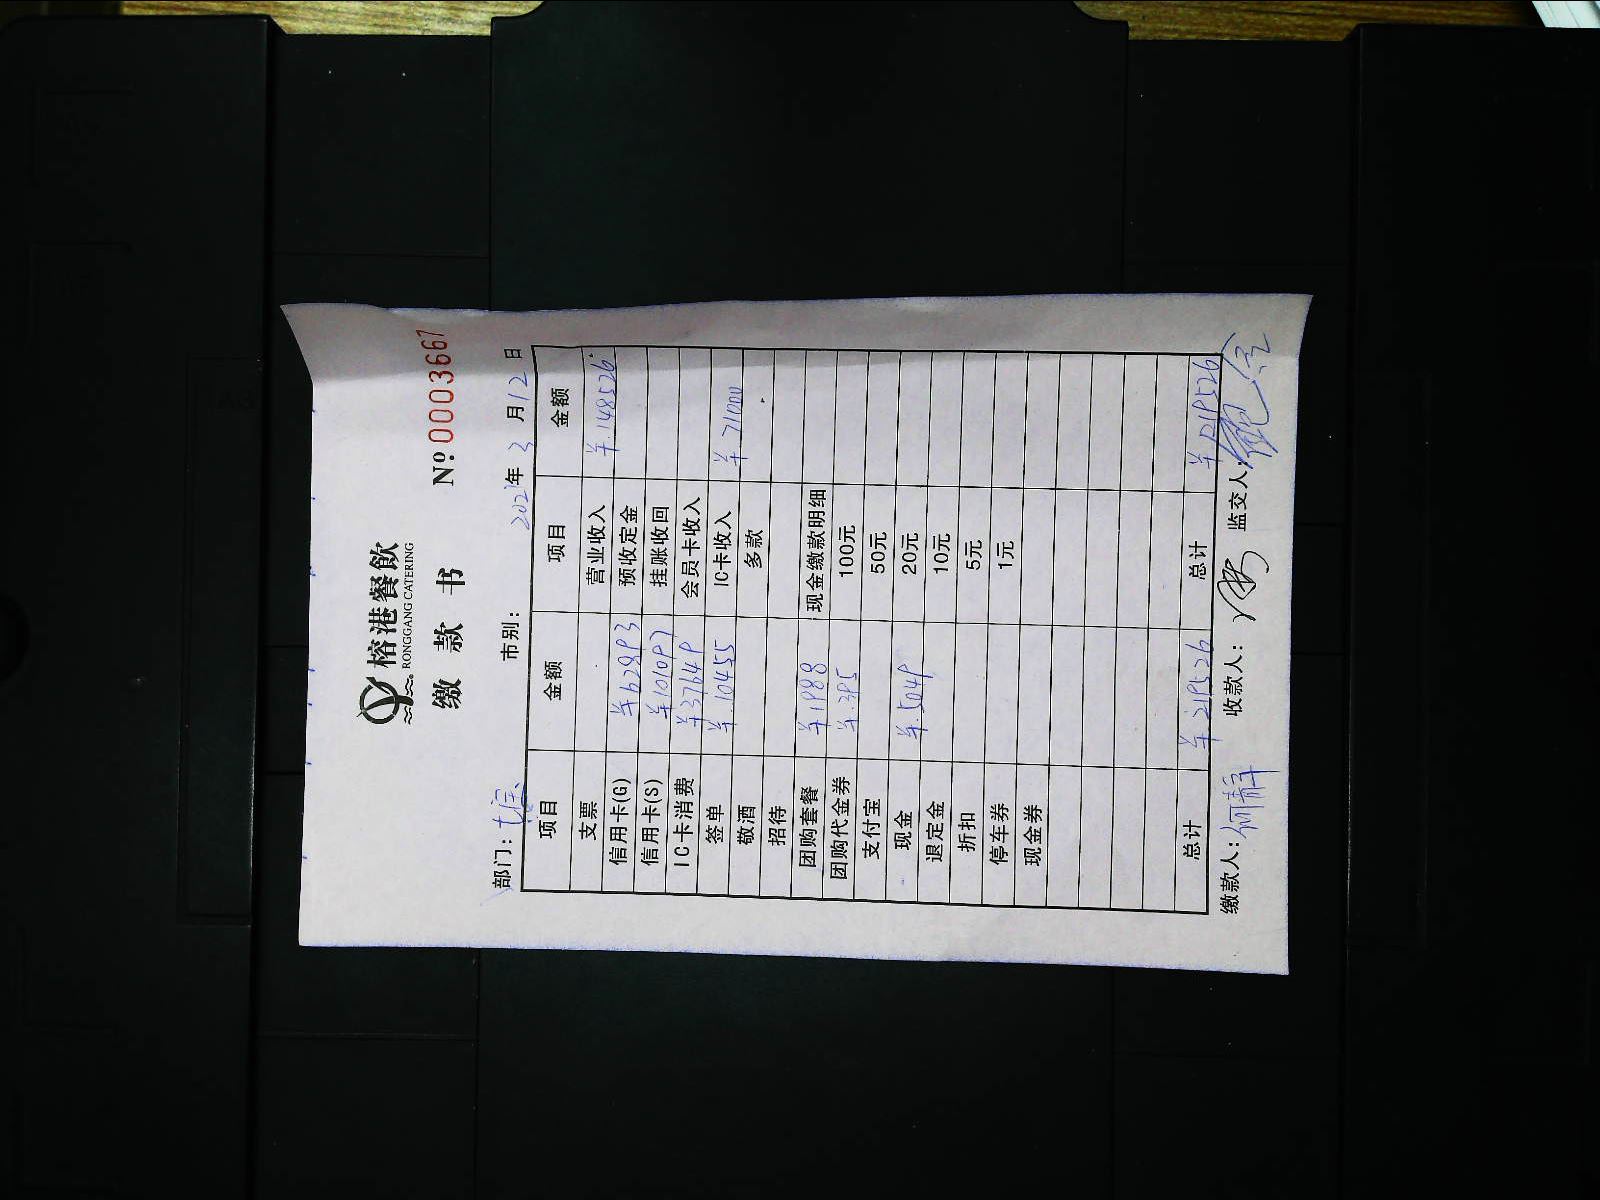 榕港餐飲
RONGGANG CATERING
缴 款 书 Nº:0003667
部门: 市别: 2021年3月12日
项目 金额 项目 金额
支票 营业收入 ¥.148526
信用卡(G) ¥62893 预收定金
信用卡(S) ¥101097 挂账收回
IC卡消费 ¥37649 会员卡收入
签单 ¥.10455 IC卡收入 ¥71000
敬酒 多款
招待
团购套餐 ¥1988 现金缴款明细
团购代金券 ¥.395 100元
支付宝 50元
现金 ¥.5049 20元
退定金 10元
折扣 5元
停车券 1元
现金券
总计 ¥219526 总计 ¥219526
缴款人:何静 收款人: 监交人: